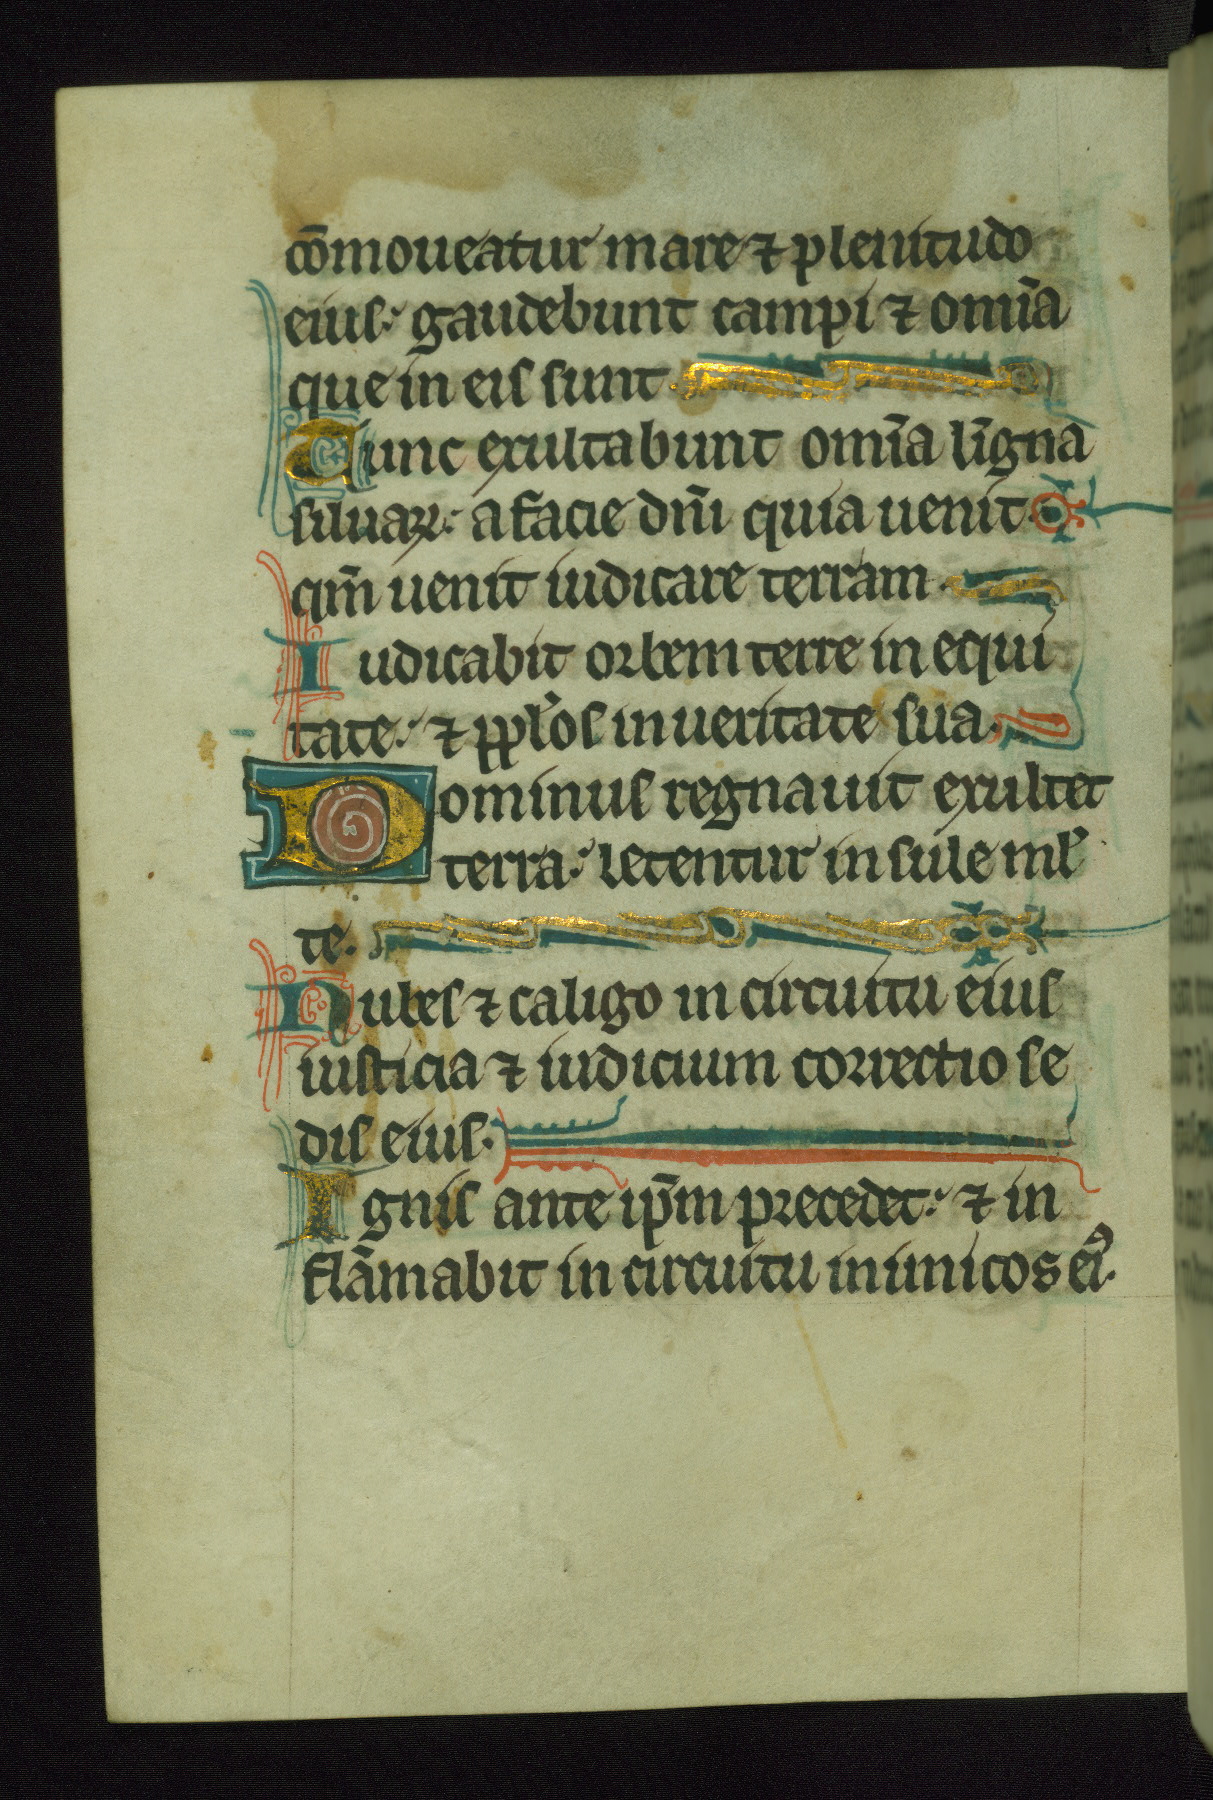 cōmoueatur mare ⁊ plenitudo
eius: gaudebunt campi ⁊ omīa
que in eis sunt.
Tunc exultabunt omīa līgna
siluaꝝ: a facie dn̄i quia uenit.
qm̄ uenit iudicare terram.
Iudicabit orbem terre in equi
tate: ⁊ ppl̓os in ueritate sua.
Dominus regnauit exultet
terra: letentur insule ml̓
te.
Nubes ⁊ caligo in circuitu eius
iusticia ⁊ iudicium correctio se
dis eius.
Ignis ante ip̄m precedet: ⁊ in
flāmabit in circuitu inimicos ei᾽.